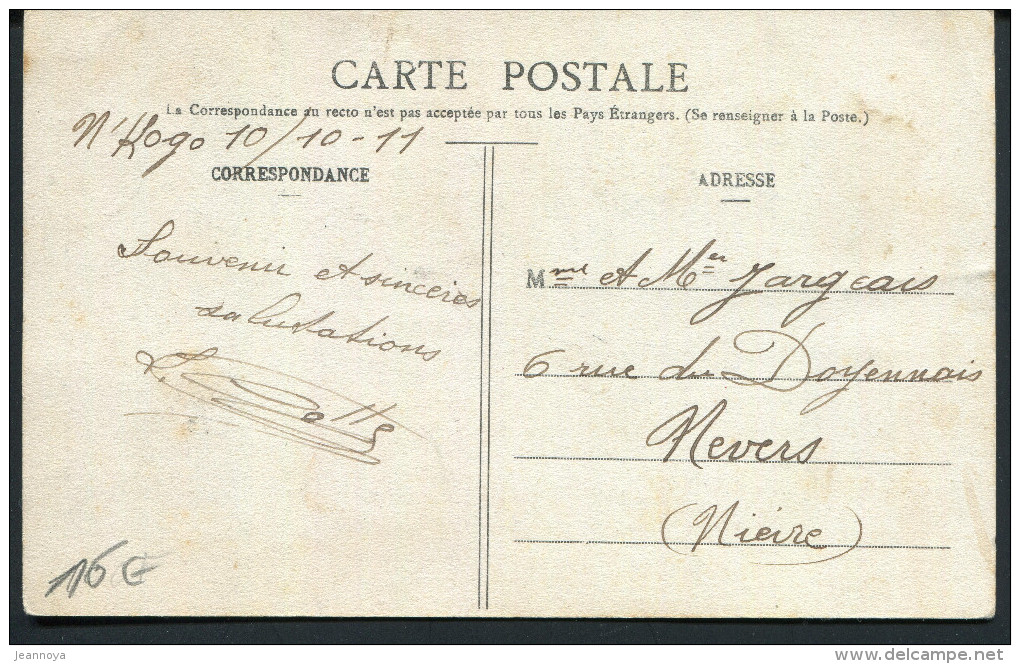 CARTE POSTALE
La Correspondance au recto n'est pas acceptée par tous les Pays Étrangers. (Se renseigner à la Poste.)
N'Kogo 10/10-11
CORRESPONDANCE
Souvenir et sinceres
salutations
L.
ADRESSE
Mme et Mer Jargeais
6 rue du Doyennais
Nevers
(Nièvre)
16 €
jeannoya
www.delcampe.net